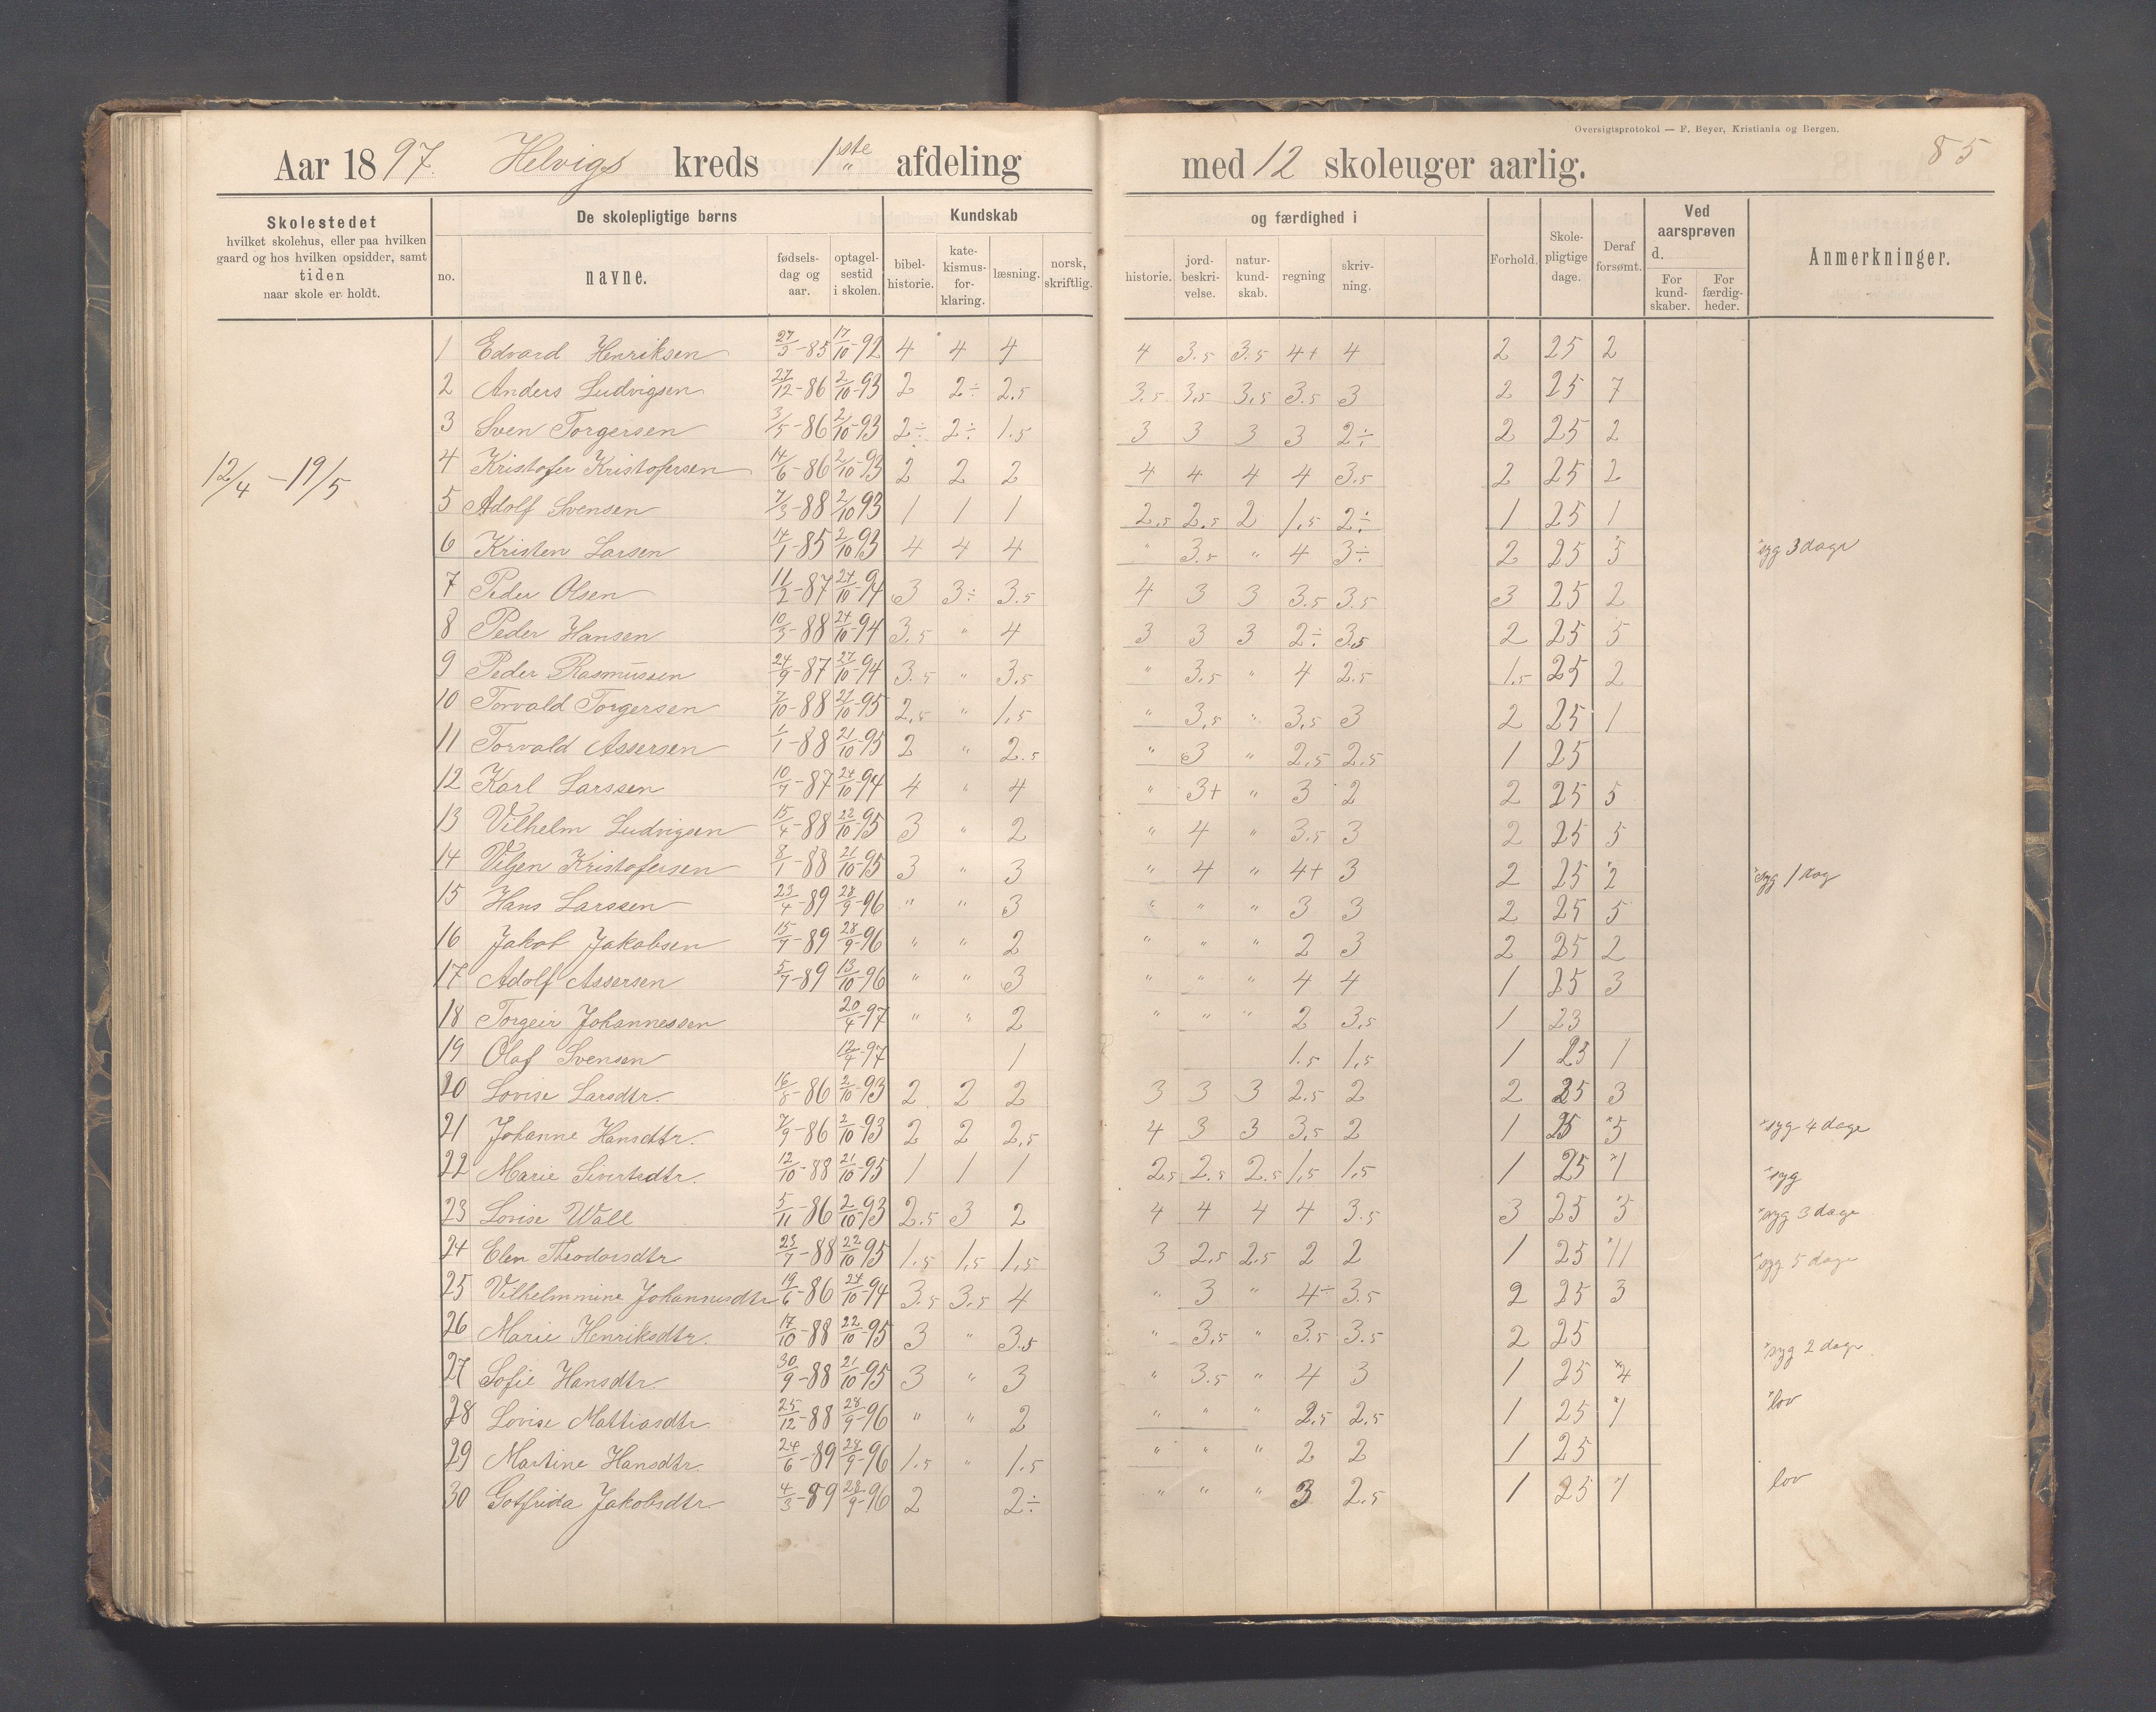 Oversigtsprotokol — F. Beyer, Kristiania og Bergen.
85
Aar 1897. Helvigs kreds 1ste afdeling med 12 skoleuger aarlig.
Skolestedet hvilket skolehus, eller paa hvilken gaard og hos hvilken opsidder, samt tiden naar skole er holdt.
De skolepligtige børns
no. navne. fødsels-dag og aar. optagel-sestid i skolen.
Kundskab og færdighed i
bibel-historie. kate-kismus-for-klaring. læsning. norsk, skriftlig. historie. jord-beskri-velse. natur-kund-skab. regning skriv-ning.
Forhold. Skole-pligtige dage. Deraf forsømt. Ved aarsprøven d. For kund-skaber. For færdig-heder. Anmerkninger.
12/4 – 19/5
1 Edvard Henriksen 27/3-85 17/10-92 4 4 4 4 3.5 3.5 4+ 4 2 25 2
2 Anders Ludvigsen 27/12-86 2/10-93 2 2÷ 2.5 3.5 3.5 3.5 3.5 3 2 25 7
3 Sven Torgersen 3/5-86 2/10-93 2÷ 2÷ 1.5 3 3 3 3 2÷ 2 25 2
4 Kristofer Kristofersen 14/6-86 2/10-93 2 2 2 4 4 4 4 3.5 2 25 2
5 Adolf Svensen 7/3-88 2/10 93 1 1 1 2.5 2.5 2 1.5 2÷ 1 25 1
6 Kristen Larsen 14/1-85 2/10 93 4 4 4 " 3.5 " 4 3÷ 2 25 *5 *syg 3 dage
7 Peder Olsen 11/2-87 24/10-94 3 3÷ 3.5 4 3 3 3.5 3.5 3 25 2
8 Peder Hansen 10/3-88 24/10-94 3.5 " 4 3 3 3 2÷ 3.5 2 25 5
9 Peder Rasmussen 24/9-87 27/10-94 3.5 " 3.5 " 3.5 " 4 2.5 1.5 25 2
10 Torvald Torgersen 2/10-88 21/10-95 2.5 " 1.5 " 3.5 " 3.5 3 2 25 1
11 Torvald Assersen 1/1-88 21/10-95 2 " 2.5 " 3 " 2.5 2.5 1 25
12 Karl Larssen 10/7-87 24/10-94 4 " 4 " 3+ " 3 2 2 25 5
13 Vilhelm Ludvigsen 15/4-88 22/10-95 3 " 2 " 4 " 3.5 3 2 25 5
14 Viljen Kristofersen 8/1-88 21/10-95 3 " 3 " 4 " 4+ 3 2 25 *2 *syg 1 dag
15 Hans Larssen 23/4-89 28/9-96 " " 3 " " " 3 3 2 25 5
16 Jakob Jakobsen 15/7-89 28/9-96 " " 2 " " " 2 3 2 25 2
17 Adolf Assersen 5/7-89 13/10-96 " " 3 " " " 4 4 1 25 3
18 Torgeir Johannessen 20/4-97 " " 2 " " " 2 3.5 1 23
19 Olaf Svensen 12/4-97 1 1.5 1.5 1 25 1
20 Lovise Larsdtr. 16/8-86 2/10-93 2 2 2 3 3 3 2.5 2 2 25 3
21 Johanne Hansdtr. 7/9-86 2/10-93 2 2 2.5 4 3 3 3.5 2 1 25 *5 *syg 4 dage
22 Marie Sivertsdtr. 12/10-88 21/10-95 1 1 1 2.5 2.5 2.5 1.5 1.5 1 25 *1 *syg
23 Lovise Wall 5/11-86 2/10-93 2.5 3 2 4 4 4 4 3.5 3 25 *3 *syg 3 dage
24 Elen Theodorsdtr 23/7-88 22/10 95 1.5 1.5 1.5 3 2.5 2.5 2 2 1 25 *11 *syg 5 dage
25 Vilhelmmine Johannesdtr 19/6-86 24/10-94 3.5 3.5 4 " 3 " 4÷ 3.5 2 25 3
26 Marie Henriksdtr. 17/10-88 22/10-95 3 " 3.5 " 3.5 " 3.5 3.5 2 25
27 Sofie Hansdtr. 30/9-88 21/10-95 3 " 3 " 3.5 " 4 3 1 25 *4 *syg 2 dage
28 Lovise Mattiasdtr. 25/12-88 28/9-96 " " 2 " " " 2.5 2.5 1 25 *1 *lov
29 Martine Hansdtr. 24/6-89 28/9-96 1.5 " 1.5 " " " 2 2 1 25
30 Gotfrida Jakobsdtr. 4/3-89 28/9-96 2 2÷ " " " 3 2.5 1 25 *1 lov